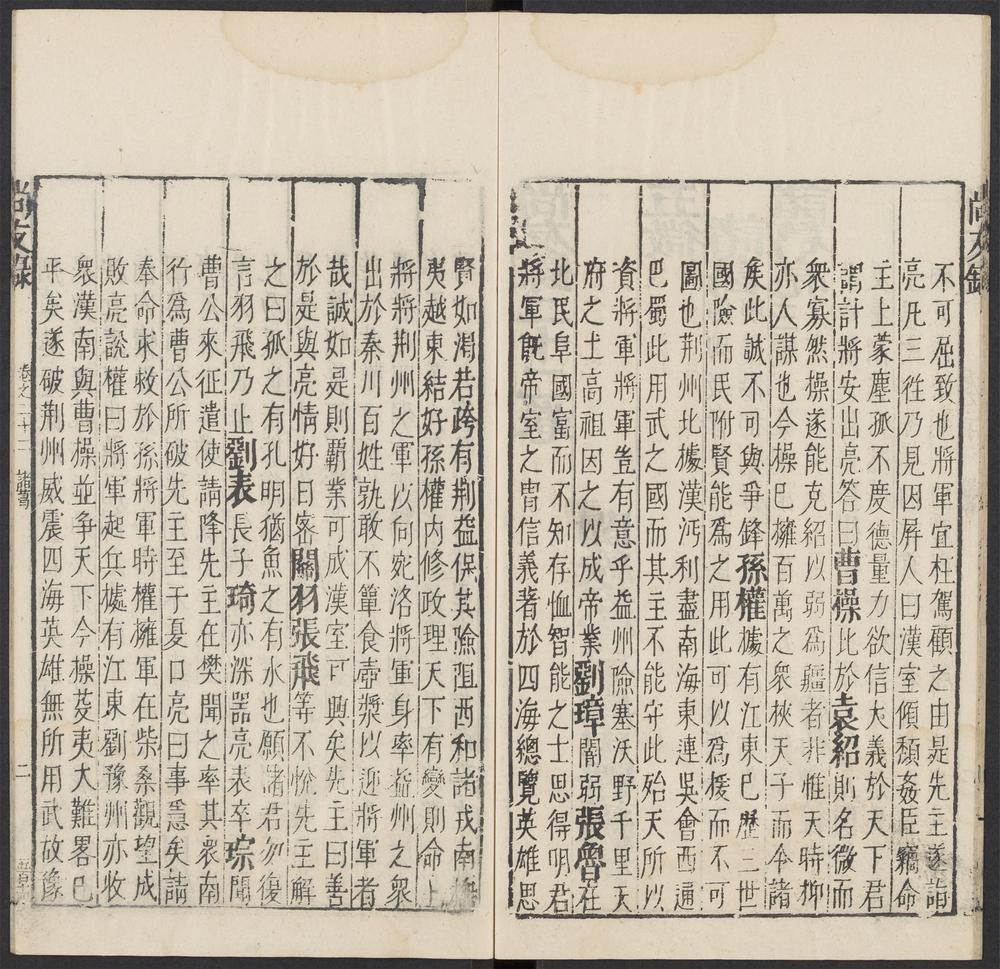 尚友錄
不可屈致也將軍宜枉駕顧之由是先主遂詣
亮凡三徃乃見因屏人曰漢室傾頽姦臣竊命
主上蒙塵孤不度德量力欲信大義於天下君
謂計將安出亮答曰曹操比於袁紹則名微而
衆寡然操遂能克紹以弱為彊者非惟天時抑
亦人謀也今操已擁百萬之衆挾天子而令諸
矦此誠不可與爭鋒孫權據有江東已歷三世
國險而民附賢能爲之用此可以爲援而不可
圖也荆州北據漢沔利盡南海東連吳會西通
巴蜀此用武之國而其主不能守此殆天所以
資將軍將軍豈有意乎益州險塞沃野千里天
府之土高祖因之以成帝業劉璋闇弱張魯在
北民阜國富而不知存恤智能之士思得明君
將軍旣帝室之胄信義著於四海總覽英雄思
賢如渴若跨有荆益保其險阻西和諸戎南撫
夷越東結好孫權内修政理天下有變則命上
將將荆州之軍以向宛洛將軍身率益州之衆
出於秦川百姓孰敢不簞食壺漿以迎將軍者
哉誠如是則霸業可成漢室可興矣先主曰善
於是與亮情好日密關羽張飛等不悅先主解
之曰孤之有孔明猶魚之有水也願諸君勿復
言羽飛乃止劉表長子琦亦深噐亮表卒琮聞
曹公來征遣使請降先主在樊聞之率其衆南
行爲曹公所破先主至于夏口亮曰事急矣請
奉命求救於孫將軍時權擁軍在柴桑觀望成
敗亮說權曰將軍起兵據有江東劉豫州亦收
衆漢南與曹操並爭天下今操芟夷大難畧已
平矣遂破荆州威震四海英雄無所用武故豫
尚友錄
卷之二十二 諸葛
二